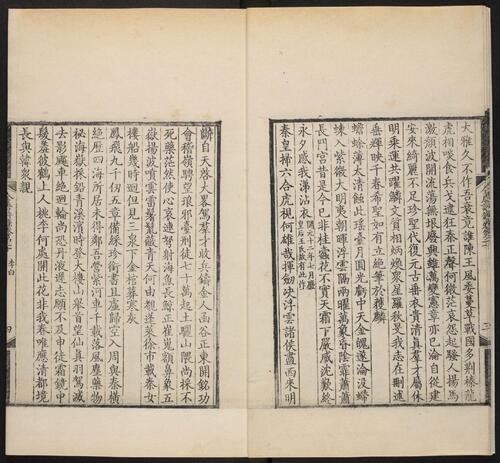 大雅久不作吾衰竟誰陳王風委蔓草戰國多荆榛龍
虎相啖食兵戈逮狂秦正聲何微茫哀怨起騷人揚馬
激頽波開流蕩無垠廢興雖萬變憲章亦已淪自從建
安來綺麗不足珍聖代復元古垂衣貴清真羣才屬休
明乘運共躍鱗文質相炳煥衆星羅秋旻我志在刪述
垂輝映千春希聖如有立絶筆於獲麟
蟾蜍薄太清蝕此瑤臺月圓光虧中天金魄遂淪没螮
蝀入紫微大明夷朝暉浮雲隔兩曜萬象昏陰霏蕭蕭
長門宮昔是今已非桂蠹花不實天霜下嚴威沈歎終
永夕感我涕沾衣開元十二年七月廢皇后王氏故有此作
秦皇掃六合虎視何雄哉揮劒決浮雲諸侯盡西來明
斷自天啓大畧駕羣才收兵鑄金人函谷正東開銘功
會稽嶺騁望琅邪臺刑徒七十萬起土驪山隈尚採不
死藥茫然使心哀連弩射海魚長鯨正崔嵬額鼻象五
嶽揚波噴雲雷鬐鬛蔽青天何由覩蓬萊徐市載秦女
樓船幾時迴但見三泉下金棺葬寒灰
鳳飛九千仞五章備綵珍銜書且虛歸空入周與秦橫
絶歷四海所居未得鄰吾營紫河車千載落風塵藥物
秘海嶽採鉛青溪濱時登大樓山舉首望仙真羽駕滅
去影飇車絶迴輪尚恐丹液遲志願不及申徒霜鏡中
髮羞彼鶴上人桃李何處開此花非我春唯應清都境
長與韓衆親
李白
四